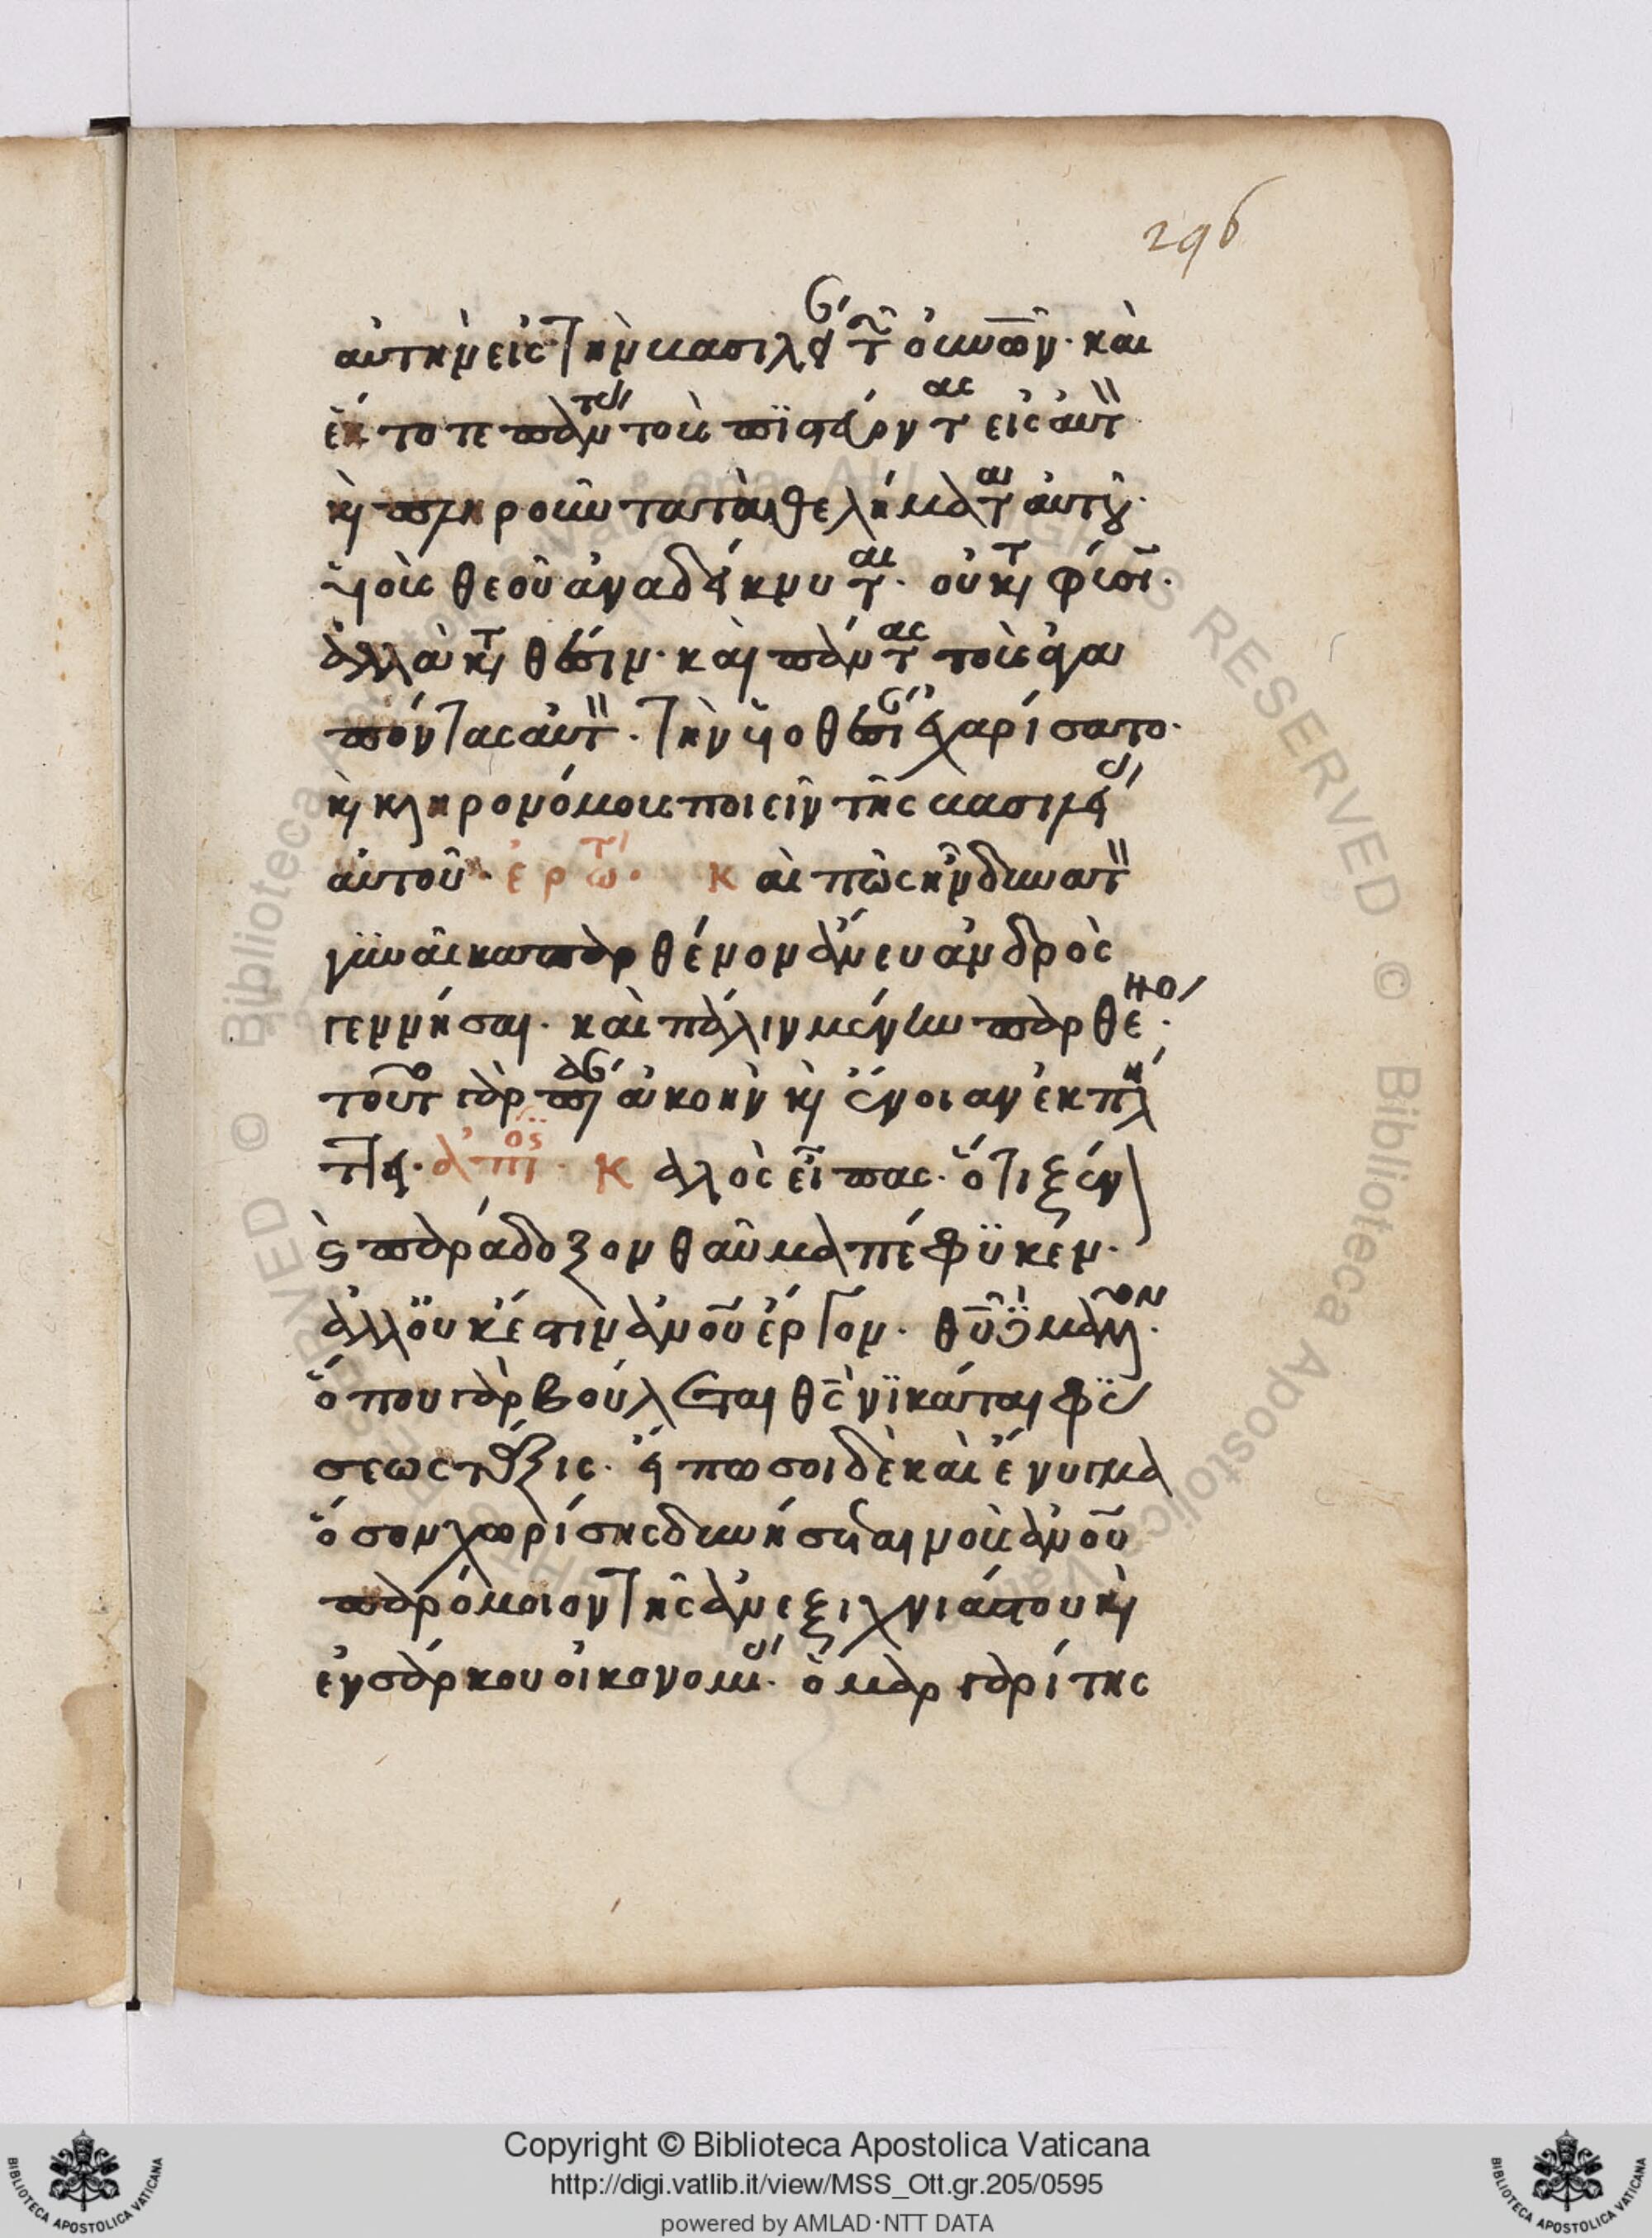 296
αὐτὴν εἰς τὴν βασιλεί τῶν οὐνῶν· καὶ
ἔκτοτε πάντ τοὺ πϊστεύοντας εἰς αὐτ
κὶ πληροῦντα τὰ θελήματ αὐτοῦ·
ϋἱοὺ θεοῦ ἀναδείκνυται· οὐ κατ φύσι·
ἀλλὰ κατ θέσιν· καὶ πάντας τοὺς ἀγα
πόντας αὐτ· τὴν υἱοθεσί ἐχαρίσατο·
κὶ κληρονόμου ποιεῖν τῆς βασιλεί
αὐτοῦ· ἐρώτ· Καὶ πῶς ἠδύνατ
γϋναῖκα παρθένον ἄνευ ἀνδρὸς
γεννήσαι· καὶ πάλιν μένειν παρθένο·
τοῦτο γὰρ πᾶσ ἀκοὴν κὶ ἔννοιαν ἐκπλή
ττει· ἀπόϊ· Καλὸς εἶπας· ὅτι ξέν
ς παράδοξον θαῦμα πέφϋκεν·
ἀλλ' οὐκ ἔστιν ἀνοῦ ἔργον· θῦ μᾶλλον·
ὅπου γὰρ βούλεται θς νϊκάται φϋ
σεως τάξις· εἴπω σοι δὲ καὶ ἔνυγμα
ὅσον χωρίσης δυνήσεται νοὺ ἀνοῦ
παρόμοιον τῆς ἀνεξιχνιάστου κὶ
ἐνσάρκου οἰκονομί· ὁ μαργαρίτης
Copyright © Biblioteca Apostolica Vaticana
http://digi.vatlib.it/view/MSS_Ott.gr.205/0595
powered by AMLAD·NTT DATA